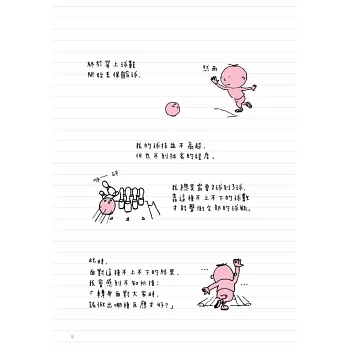 終於穿上球鞋
開始丟保齡球。
然而
我的球技並不高超，
但也不到拙劣的程度。
我總是需要2球到3球，
靠這種不上不下的球數
才能擊倒全部的球瓶。
此時，
面對這種不上不下的結果，
我會感到不知所措：
「轉身面對大家時，
該做出哪種反應才好？」